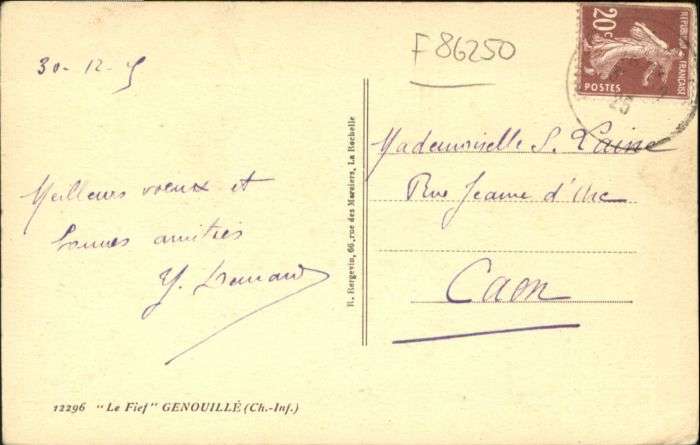 30-12-5
Meilleurs voeux et
bonnes amitiés
Y.
F 86250
20c
REPUBLIQUE FRANÇAISE
POSTES
25
Mademoiselle S. Laine
Rue Jeanne d'Arc
Caen
R. Bergevin, 66, rue des Merciers, La Rochelle
12296 "Le Fief" GENOUILLÉ (Ch.-Inf.)